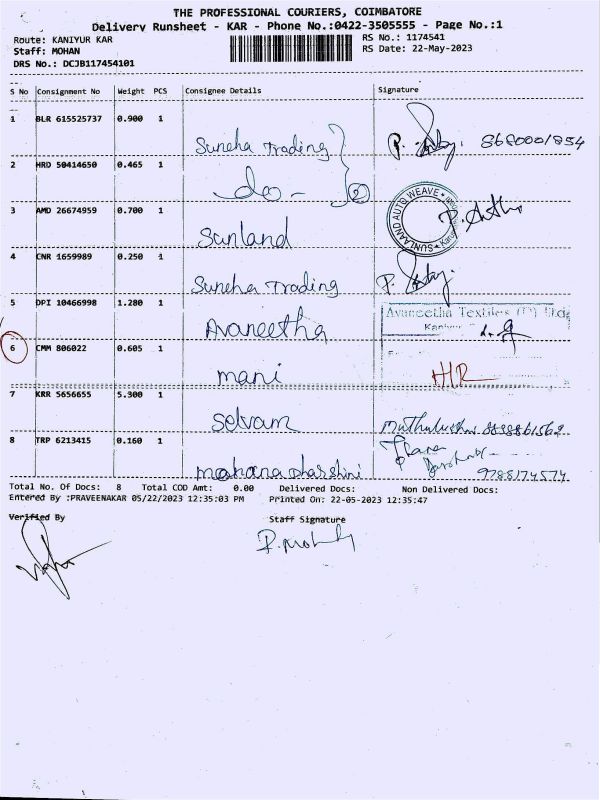 THE PROFESSIONAL COURIERS, COIMBATORE
Delivery Runsheet - KAR - Phone No.:0422-3505555 - Page No.:1
Route: KANIYUR KAR
Staff: MOHAN
DRS No.: DCJB117454101
RS No.: 1174541
RS Date: 22-May-2023
S No Consignment No Weight PCS Consignee Details Signature
1 BLR 615525737 0.900 1 Suneha Trading 8680001854
2 HRD 50414650 0.465 1 -do- 2
3 AMD 26674959 0.700 1 Sunland
SUNLAAND AUTO WEAVE
4 CNR 1659989 0.250 1 Suneha Trading
5 DPI 10466998 1.280 1 Avaneetha
Avaneetha Textiles (P) Ltd
6 CMM 806022 0.605 1 mani HR
7 KRR 5656655 5.300 1 Selvam
8 TRP 6213415 0.160 1 mohana dharshini 9788174574
Total No. Of Docs: 8 Total COD Amt: 0.00 Delivered Docs: Non Delivered Docs:
Entered By :PRAVEENAKAR 05/22/2023 12:35:03 PM Printed On: 22-05-2023 12:35:47
Verified By Staff Signature
P. Mohan